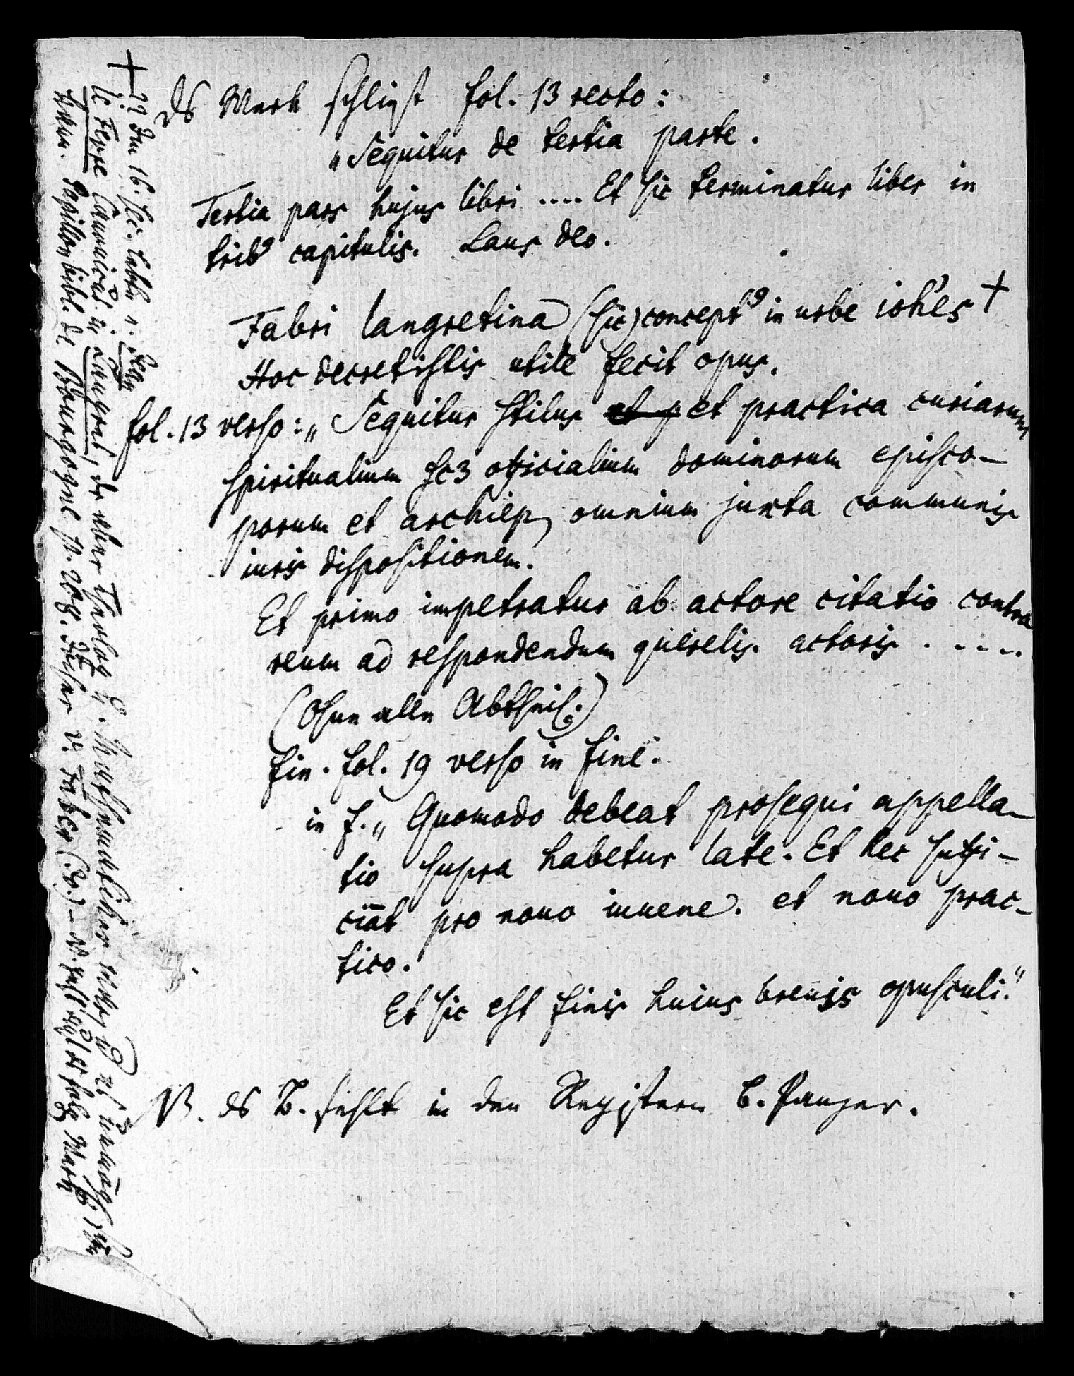 ds Werk schliest fol. 13 recto:
„Sequitur de tertia parte.
Tertia pars hujus libri .... Et sic terminatur liber in
trib9 capitulis. Laus deo.
Fabri langretina (sic) concept9 in urbe ioh'es +
Hoc decretistis utile fecit opus.
fol. 13 verso: „Sequitur stilus et p et practica curiarum
spiritualium sc3 officialium dominorum episco-
porum et archiep omnium juxta communis
iuris dispositionem.
Et primo impetratur ab actore citatio contra
reum ad respondendum querelis actoris . - - - .
(Ohne alle Abtheil:)
fin. fol. 19 verso in fine.
in f. „Quomodo debeat prosequi appella-
tio supra habetur late. Et hec suffi-
ciāt pro nouo iuuene. et nouo prac-
tico.
Et sic est finis huius breuis opusculi."
NB. ds B. fehlt in den Registern b. Panzer.
+ Im 16 sec. lebte
le Fevre Canonicus in Langres, der aber Theolog u. Mathematiker
Papillon bibl. de Bourgogne p. 208.